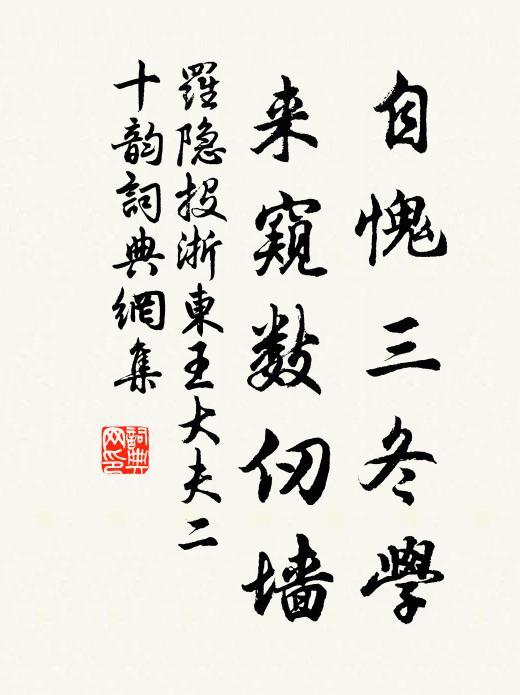 自愧三冬學
来窺数仞墙
羅隐投浙東王大夫二
十韵詞典網集
詞典网印